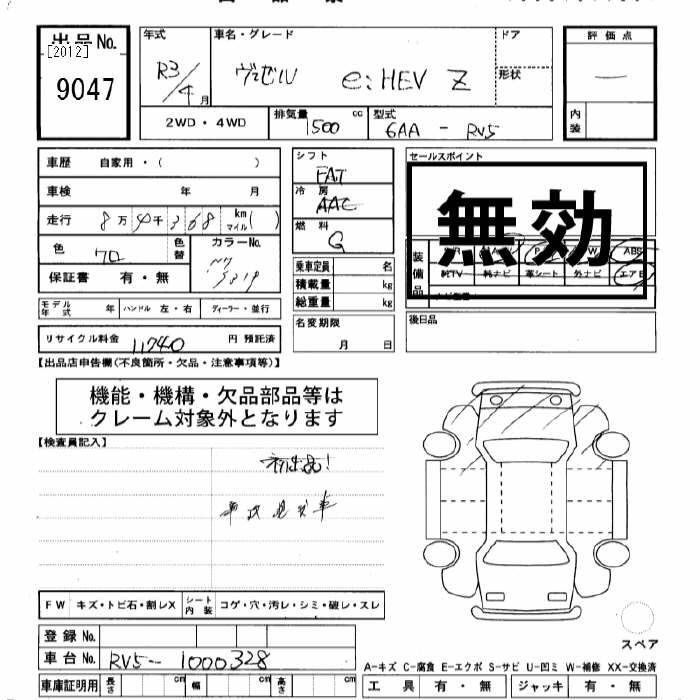 出品No.
[2012]
9047
年式
R3/4月
車名・グレード
ヴェゼル e:HEV Z
ドア
形状
評価点
―
内装
2WD・4WD
排気量 1500 cc
型式 6AA - RV5
車歴 自家用・( )
車検 年 月
走行 8万 4千 368 km マイル ( )
色 クロ 色替 カラーNo.
保証書 有・無
モデル年式 年 ハンドル 左・右 ディーラー・並行
リサイクル料金 11740 円 預託済
シフト FAT
冷房 AAC
燃料 G
乗車定員 名
積載量 kg
総重量 kg
名変期限
月 日
セールスポイント
無効
装備品
ABS
純TV 純ナビ 革シート 外ナビ エアB
後日品
【出品店申告欄(不良箇所・欠品・注意事項等)】
機能・機構・欠品部品等は
クレーム対象外となります
【検査員記入】
初出品!
FW キズ・トビ石・割レX シート内装 コゲ・穴・汚レ・シミ・破レ・スレ
登録No.
車台No. RV5-1000328
車庫証明用 長さ cm 幅 cm 高さ cm
スペア
A-キズ C-腐食 E-エクボ S-サビ U-凹ミ W-補修 XX-交換済
工具 有・無 ジャッキ 有・無